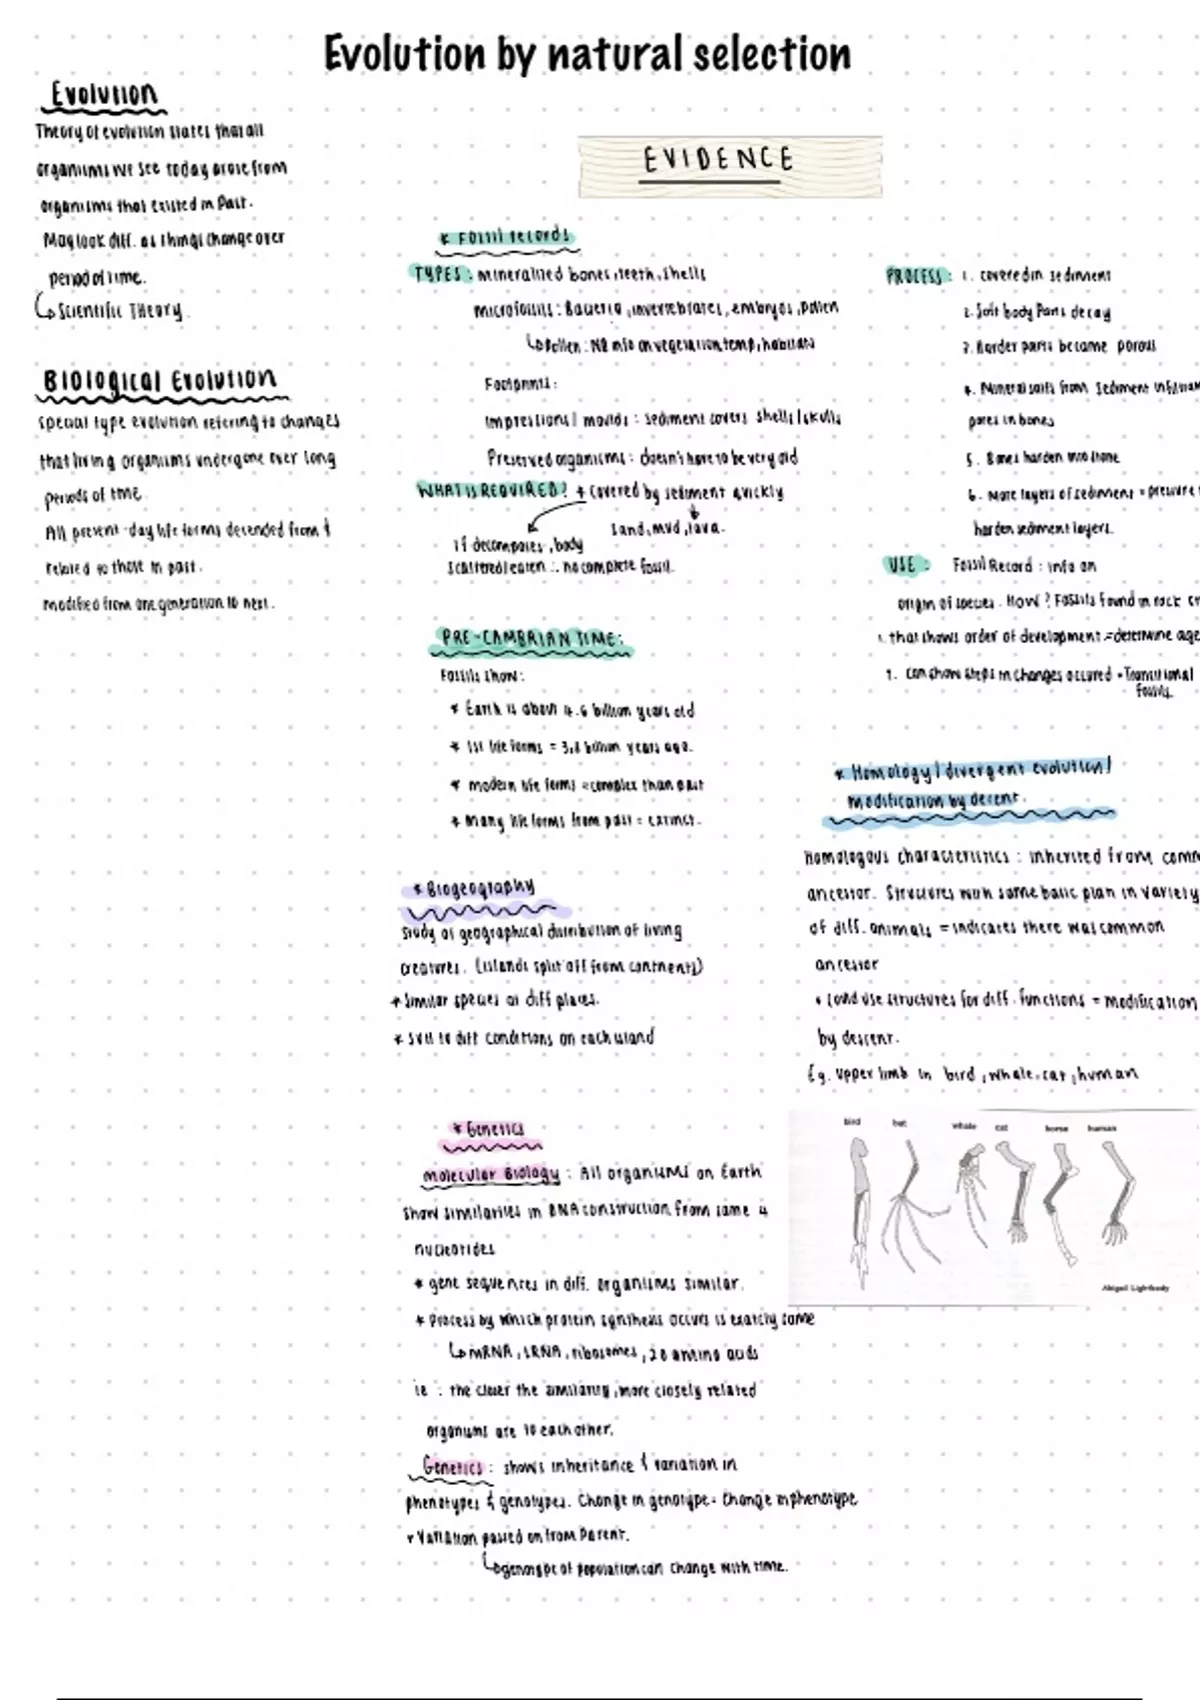 Evolution by natural selection
Evolution
Theory of evolution states that all
organisms we see today arose from
organisms that existed in past.
May look diff. as things change over
period of time.
Scientific Theory.
Biological Evolution
special type evolution refering to changes
that living organisms undergone over long
periods of time.
All present-day life forms decended from &
related to those in past.
modified from one generation to next.
EVIDENCE
* Fossil records
TYPES: mineralised bones, teeth, shells
microfossils: Bacteria, invertebrates, embryos, pollen
Pollen: NB info on vegetation, temp, habitats
Footprints:
Impressions/ moulds: sediment covers shells/skulls
Preserved organisms: doesn't have to be very old
WHAT IS REQUIRED? * covered by sediment quickly
sand, mud, lava.
if decomposes, body
scattered/eaten ∴ no complete fossil.
PRE-CAMBRIAN TIME:
Fossils show:
* Earth is about 4.6 billion years old
* 1st life forms = 3,8 billion years ago.
* modern life forms = complex than past
* many life forms from past = extinct.
* Biogeography
Study of geographical distribution of living
creatures. (islands split off from continents)
* Similar species at diff places.
* suit to diff conditions on each island
* Genetics
molecular Biology: All organisms on Earth
show similarities in DNA construction from same 4
nucleotides
* gene sequences in diff. organisms similar.
* Process by which protein synthesis occurs is exactly same
mRNA, tRNA, ribosomes, 20 amino acids
ie : the closer the similarity, more closely related
organisms are to each other.
Genetics: shows inheritance & variation in
phenotypes & genotypes. Change in genotype = Change in phenotype
* Variation passed on from Parent.
genotype of population can change with time.
PROCESS: 1. covered in sediment
2. Soft body Parts decay
3. Harder parts become porous
4. Mineral salts from sediment
pores in bones
5. Bones harden into stone
6. More layers of sediment =
harden sediment layers.
USE: Fossil Record: info on
origin of species. How? Fossils found in rock
1. that shows order of development = determine age
1. can show steps in changes occured = Transitional
fossils.
* Homology/divergent evolution/
modification by decent.
Homologous characteristics: inherited from
ancestor. Structures with same basic plan in variety
of diff. animals = indicates there was common
ancestor
* could use structures for diff. functions = modification
by descent.
Eg. upper limb in bird, whale, cat, human
bird bat whale cat horse human
Abigail Lightbody